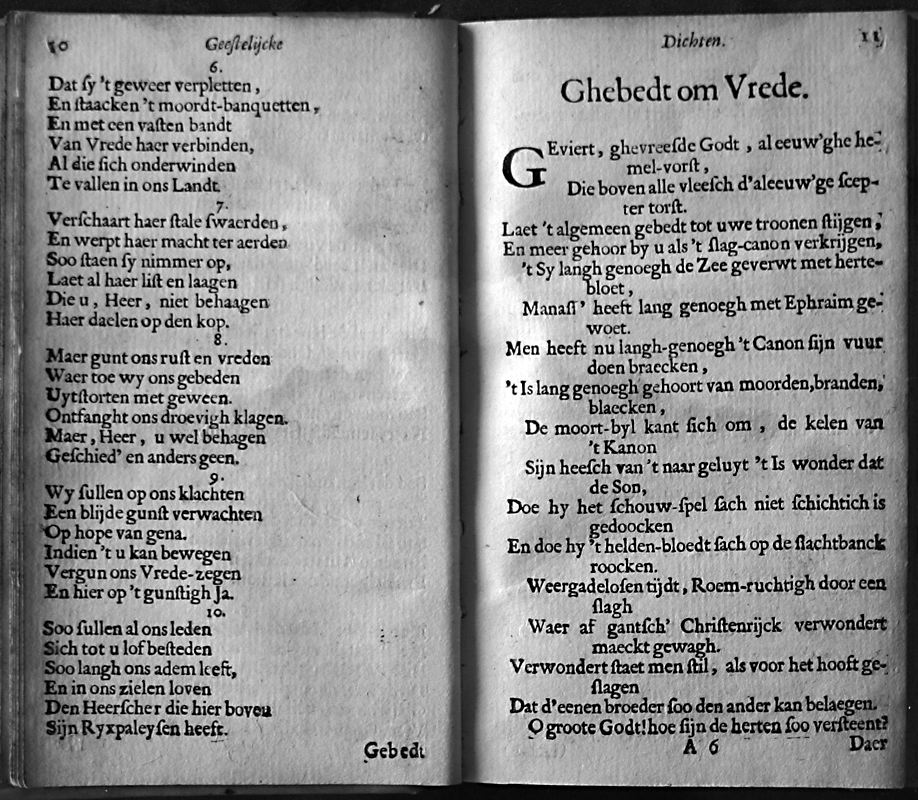 10 Geeſtelijcke
6.
Dat ſy 't geweer verpletten,
En ſtaacken 't moordt-banquetten,
En met een vaſten bandt
Van Vrede haer verbinden,
Al die ſich onderwinden
Te vallen in ons Landt.
7.
Verſchaart haer ſtale ſwaerden,
En werpt haer macht ter aerden
Soo ſtaen ſy nimmer op,
Laet al haer liſt en laagen
Die u, Heer, niet behaagen
Haer daelen op den kop.
8.
Maer gunt ons ruſt en vreden
Waer toe wy ons gebeden
Uytſtorten met geween.
Ontfanght ons droevigh klagen.
Maer, Heer, u wel behagen
Geſchied' en anders geen.
9.
Wy ſullen op ons klachten
Een blijde gunſt verwachten
Op hope van gena.
Indien 't u kan bewegen
Vergun ons Vrede-zegen
En hier op 't gunſtigh Ja.
10.
Soo ſullen al ons leden
Sich tot u lof beſteden
Soo langh ons adem leeft,
En in ons zielen loven
Den Heerſcher die hier boven
Sijn Ryxpaleyſen heeft.
Gebedt
Dichten. 11
Ghebedt om Vrede.
GEviert, ghevreeſde Godt, al eeuw'ghe he-
mel-vorſt,
Die boven alle vleeſch d'aleeuw'ge ſcep-
ter torſt.
Laet 't algemeen gebedt tot uwe troonen ſtijgen,
En meer gehoor by u als 't ſlag-canon verkrijgen,
't Sy langh genoegh de Zee geverwt met herte-
bloet,
Manaſſ' heeft lang genoegh met Ephraim ge-
woet.
Men heeft nu langh-genoegh 't Canon ſijn vuur
doen braecken,
't Is lang genoegh gehoort van moorden, branden,
blaecken,
De moort-byl kant ſich om, de kelen van
't Kanon
Sijn heeſch van 't naar geluyt 't Is wonder dat
de Son,
Doe hy het ſchouw-ſpel ſach niet ſchichtich is
gedoocken
En doe hy 't helden-bloedt ſach op de ſlachtbanck
roocken.
Weergadeloſen tijdt, Roem-ruchtigh door een
ſlagh
Waer af gantſch' Chriſtenrijck verwondert
maeckt gewagh.
Verwondert ſtaet men ſtil, als voor het hooft ge-
ſlagen
Dat d'eenen broeder ſoo den ander kan belaegen.
O groote Godt! hoe ſijn de herten ſoo verſteent?
A 6 Daer